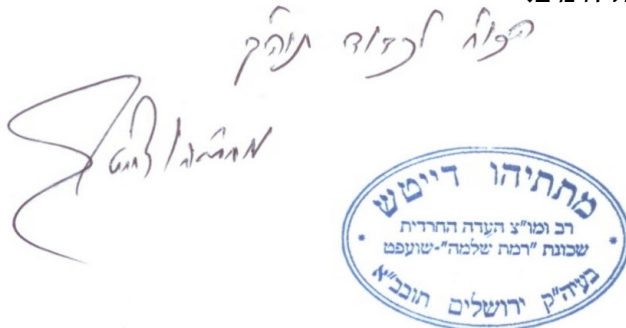 לכבוד תוה"ק
מתתיהו דייטש
מתתיהו דייטש
רב ומו"צ העדה החרדית
שכונת "רמת שלמה"-שועפט
בעיה"ק ירושלים תובב"א